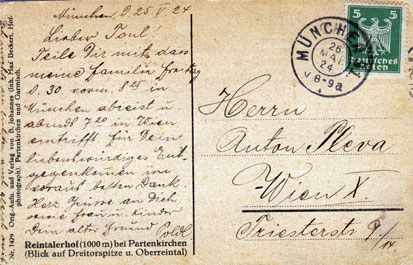 München, d 25. V 24
Lieber Toni!
Teile Dir mit das
meine Familie freitag
d. 30. vorm. 8 in
München abreist u
abends 7 20 in Wien
eintrifft für Dein
liebenswürdiges Ent-
gegenkommen im
voraus besten Dank.
Herz. Grüsse an Dich
sowie frau u. Kinder
Dein alter freund
Poldl
Reintalerhof (1000 m) bei Partenkirchen
(Blick auf Dreitorspitze u. Oberreintal)
Nr. 1479 Orig.-Aufn. und Verlag von B. Johannes (Inh. Max Beckert, Hof-
photograph), Partenkirchen und Garmisch.
MÜNCHEN
26
MAI
24
V 8-9a
5 5
Deutsches
Reich
Herrn
Anton Pleva
Wien X.
Triesterstr 9/14